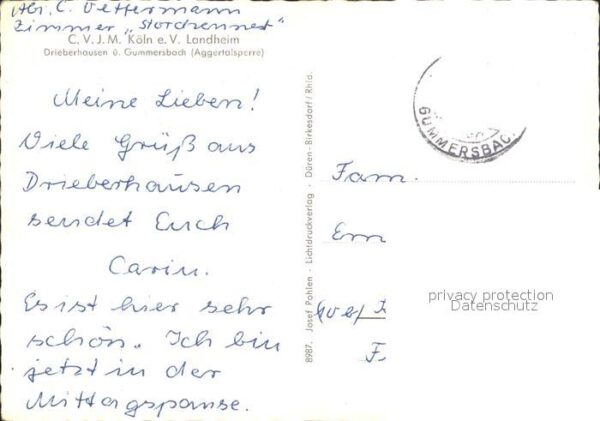 Abs. C. Oettermann
Zimmer „Storchennest"
C. V. J. M. Köln e. V. Landheim
Drieberhausen ü. Gummersbach (Aggertalsperre)
Meine Lieben!
Viele Grüß aus
Drieberhausen
sendet Euch
Carin.
Es ist hier sehr
schön. Ich bin
jetzt in der
Mittagspause.
8987. Josef Pohlen - Lichtdruckverlag - Düren-Birkesdorf/Rhld.
GUMMERSBAC
Fam.
privacy protection
Datenschutz